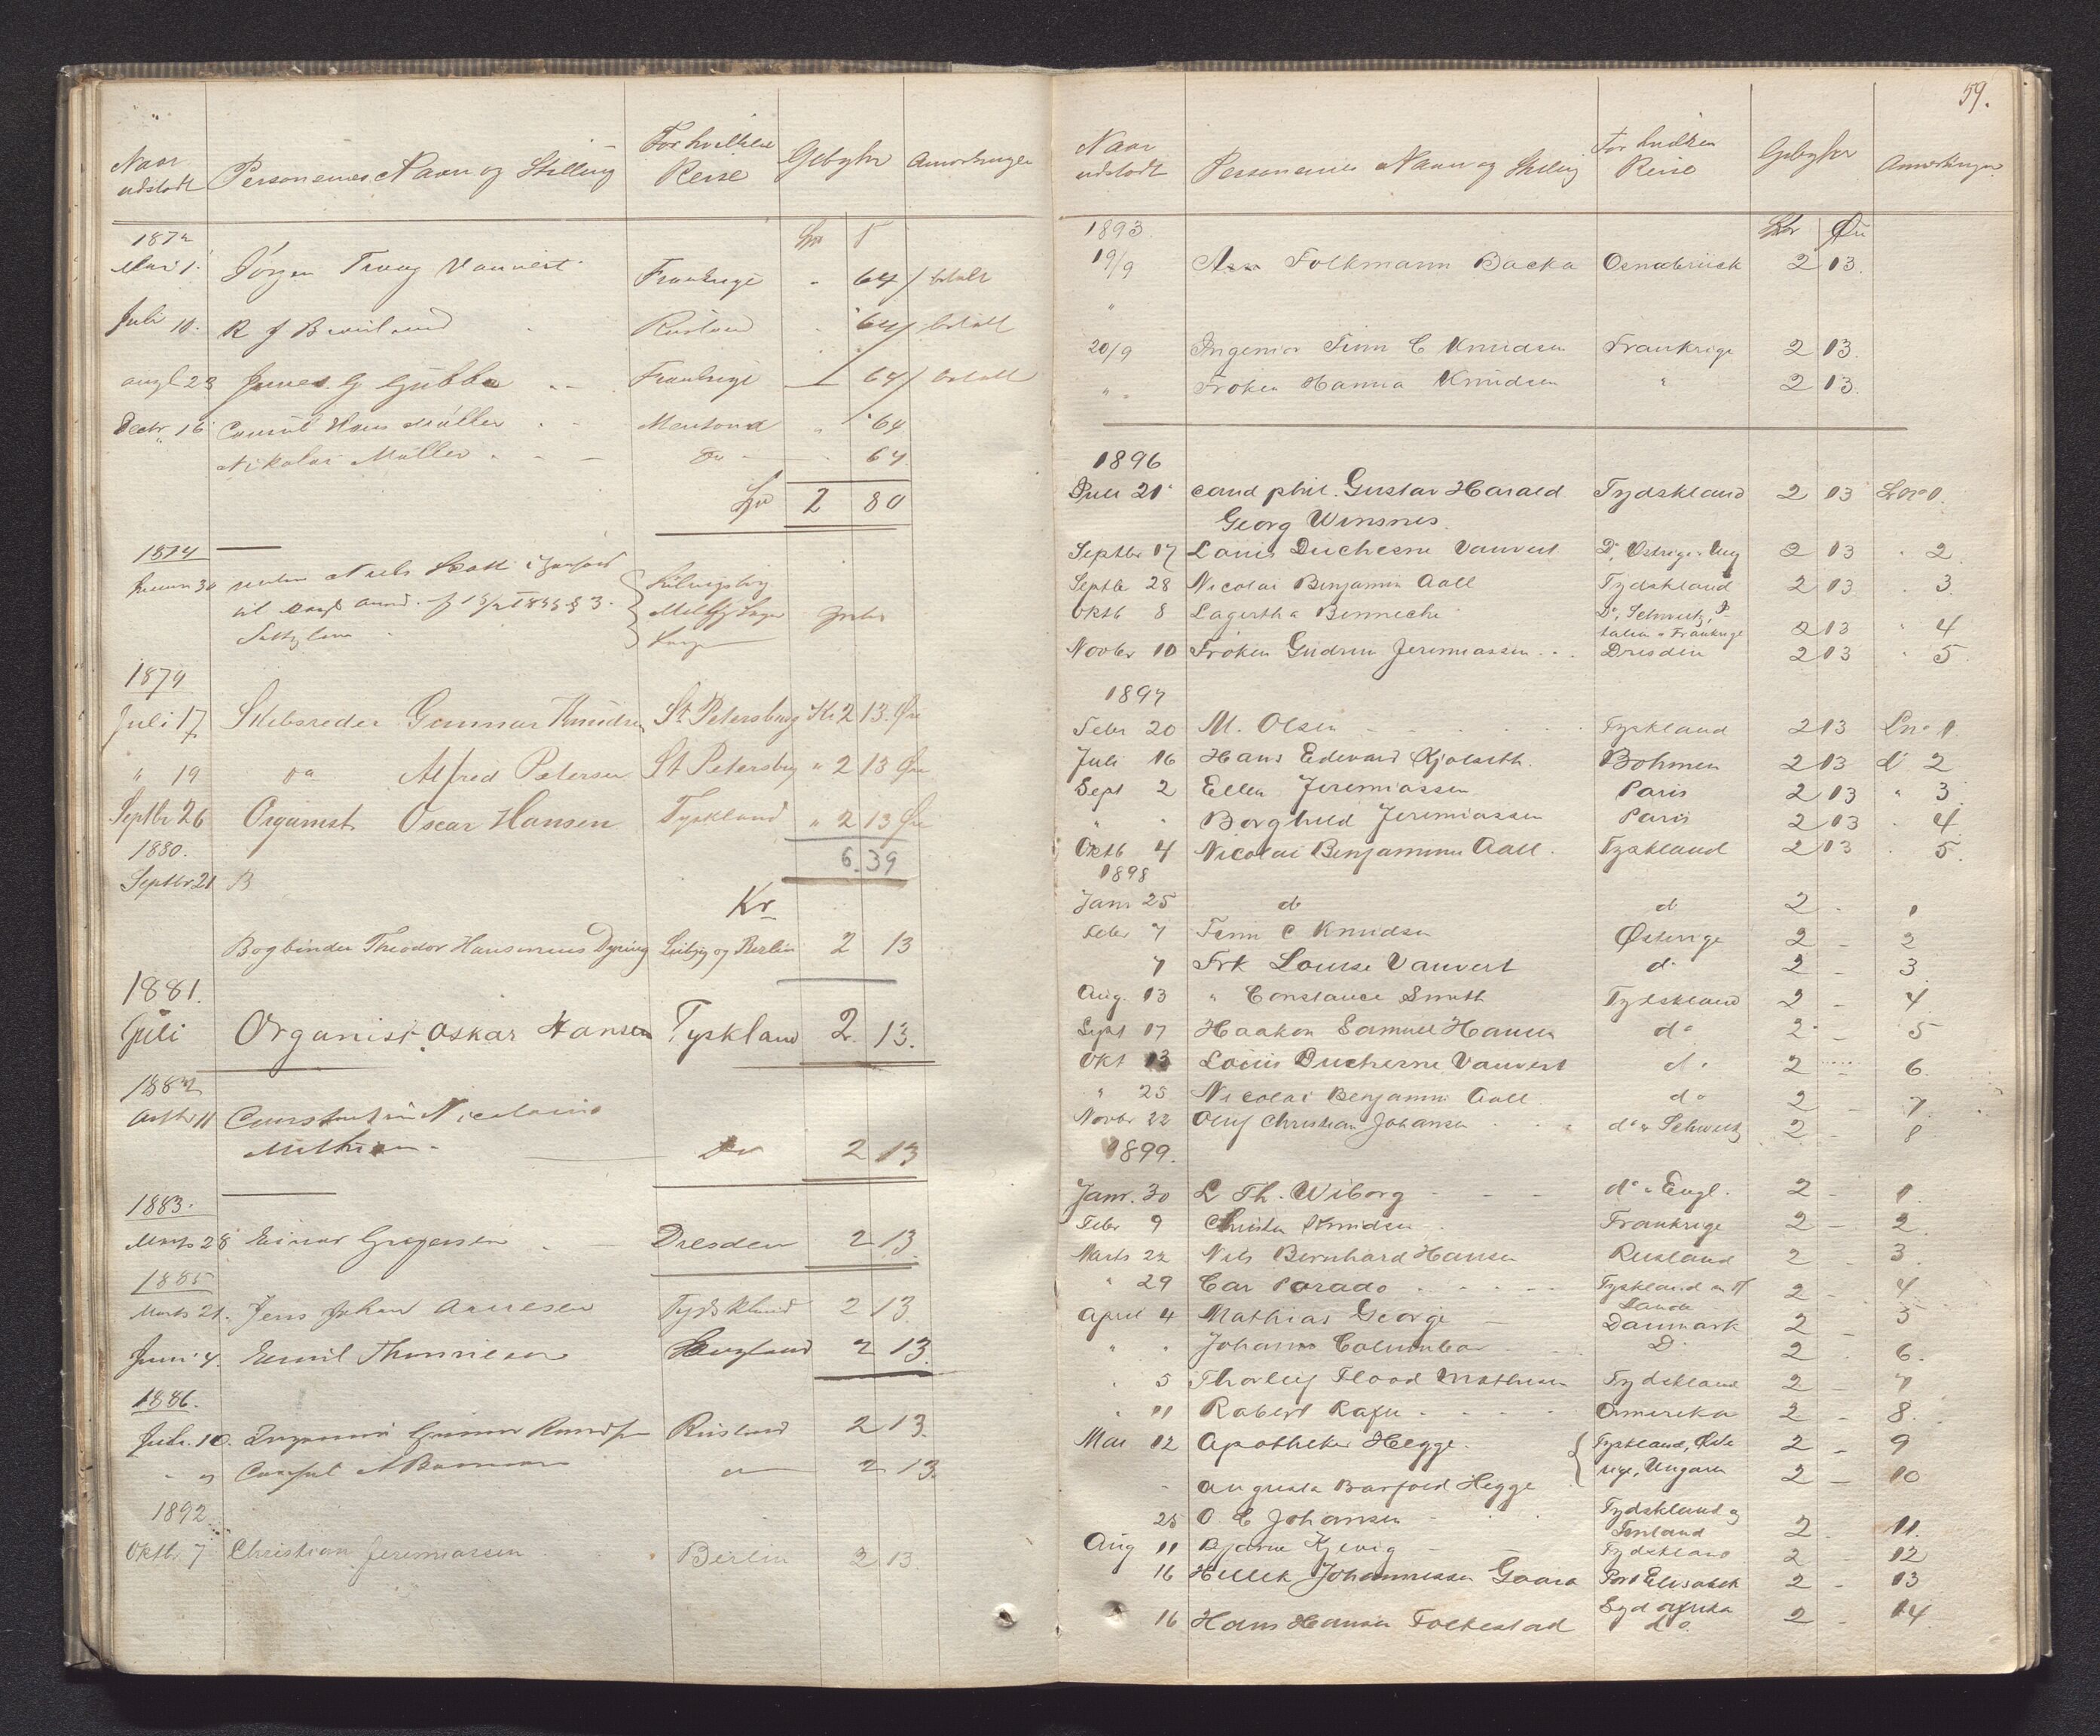 Naar udstedt Personernes Navn og Stilling For hvilken Reise Gebyhr Anmerkninger
1872
Mai 1. Jörgen Vauvert Frankrige " 64 / betalt
Juli 10. R J Rusland " 64 / betalt
Augt 23 James G Gubba Frankrige 64 / betalt
Decbr 16 Consul Hans Møller Mentona " 64
Nikolai Møller Do 64
Spd 2 80
1874
30 Niels
§ 3.
1879
Juli 17 Skibsreder Gunnar Knudsen St Petersburg Kr 2 13 Øre
" 19 do Alfred Petersen St Petersburg " 2 13 Øre
Septbr 26 Organist Oscar Hansen Tyskland " 2 13 Øre
1880. 6.39
Septbr 21 B
Kr
Bogbinder Theodor Dyring Leibzig og Berlin 2 13
1881.
Juli Organist Oskar Hansen Tyskland 2. 13.
1882
11 Constantin Nicolaius
Do 2 13
1883.
Marts 28 Einar Gregersen Dresden 2 13.
1885
Marts 21. Jens Johan Arnesen Tydskland 2 13.
Juni 4. Emil England 2 13.
1886.
10. Gunnar Knudsen Rusland 2 13.
" " Consul 2 13.
1892
Oktbr 7 Christian Jeremiassen Berlin 2 13
59.
Naar udstedt Personernes Navn og Stilling For hvilken Reise Gebyhr Anmerkninger
1893. Kr Øre
19/9 Folkmann Backa Osnabrück 2 13.
"
20/9 Ingeniør Finn C Knudsen Frankrige 2 13.
" " Frøken Hanna Knudsen " 2 13.
1896
Juli 21 cand phil. Gustav Harald Tydskland 2 13 Lno 1.
Georg Winsnes.
Septbr 17 Louis Duchesne Vauvert Do, Østrige-Ung 2 13 " 2
Septbr 28 Nicolai Benjamin Aall Tydskland 2 13 " 3.
Oktb 8 Lagertha Benneche Do, Schweitz, I-
talien & Frankrige 2 13 " 4
Novbr 10 Frøken Gudrun Jeremiassen Dresden 2 13 " 5.
1897
Febr 20 M. Olsen Tyskland 2 13 Lno 1.
Juli 16 Hans Edevard Kjølseth. Bøhmen 2 13 do 2
Sept 2 Ellen Jeremiassen Paris 2 13 " 3.
" " Borghild Jeremiassen Paris 2 13 " 4.
Oktb 4 Nicolai Benjamin Aall. Tyskland 2 13 " 5.
1898
Janr 25 do do 2 - 1
Febr 7 Finn C Knudsen Østerrige 2 - 2
7 Frk Louise Vauvert do 2 - 3.
Aug. 13 " Constance Smith Tydskland 2 - 4
Sept 17 Haakon Samuel Hansen do 2 - 5
Okt 13 Louis Duchesne Vauvert do 2 - 6.
" 25 Nicolai Benjamin Aall do 2 - 7.
Novbr 22 Oluf Christian Johansen do & Schweitz 2 - 8
1899.
Janr. 30 L Th. Wiborg do & Engl. 2 - 1.
Febr 9 Christen Knudsen Frankrige 2 - 2.
Marts 22 Nils Bernhard Hansen Rusland 2 - 3
" 29 Car Parado Tyskland 2 - 4
April 4 Mathias George Danmark 2 - 5
" " Johann Columbar Do 2 - 6.
" 5 Thorleif Flood Mathisen Tydskland 2 - 7
" 11 Robert Amerika 2 - 8.
Mai 12 Apotheker Hegge. Tyskland, Øste 2 - 9
" Augusta Barfoed Hegge rige, Ungarn 2 - 10
25 O. C Johansen Tydskland og
Finland 2 - 11.
Aug 11 Bjarne Kjevig Tydskland 2 - 12
16 Hellek Johannessen Gaara Port Elisabeth 2 - 13
Syd Afrika
16 Hans Hansen Folkestad do. 2 - 14.